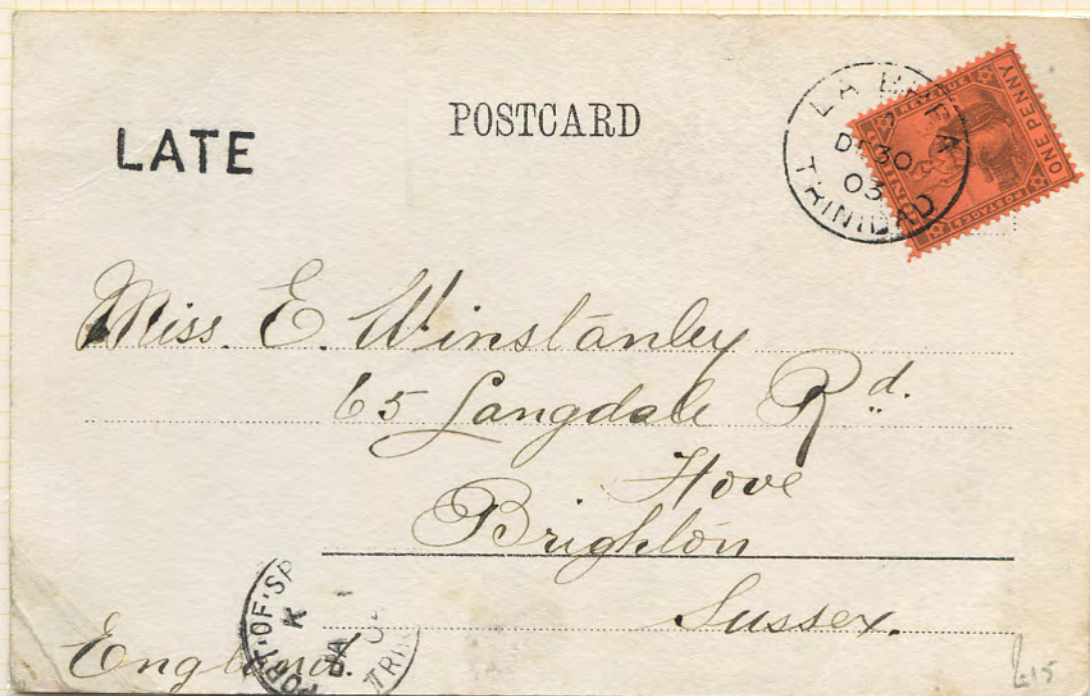 LATE
POSTCARD
LA TRINIDAD
DE 30
03
POSTAGE & REVENUE
ONE PENNY
Miss. E. Winstanley
65 Langdale Rd.
Hove
Brighton
Sussex.
England.
PORT-OF-SP
K
JA
TRIN
£15